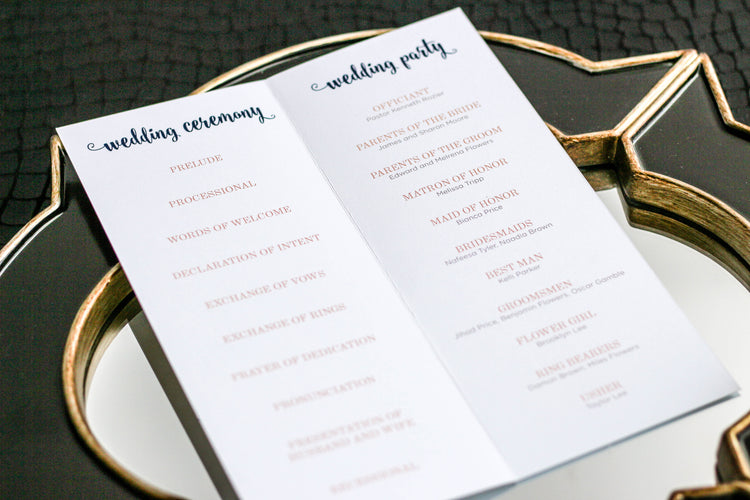 wedding ceremony
PRELUDE
PROCESSIONAL
WORDS OF WELCOME
DECLARATION OF INTENT
EXCHANGE OF VOWS
EXCHANGE OF RINGS
PRAYER OF DEDICATION
PRONUNCIATION
PRESENTATION OF
HUSBAND AND WIFE
RECESSIONAL
wedding party
OFFICIANT
Pastor Kenneth Rozier
PARENTS OF THE BRIDE
James and Sharon Moore
PARENTS OF THE GROOM
Edward and Melreno Flowers
MATRON OF HONOR
Melissa Tripp
MAID OF HONOR
Bianca Price
BRIDESMAIDS
Nafeesa Tyler, Naadia Brown
BEST MAN
Kelli Parker
GROOMSMEN
Jihad Price, Benjamin Flowers, Oscar Gamble
FLOWER GIRL
Brooklyn Lee
RING BEARERS
Damon Brown, Miles Flowers
USHER
Taylor Lee